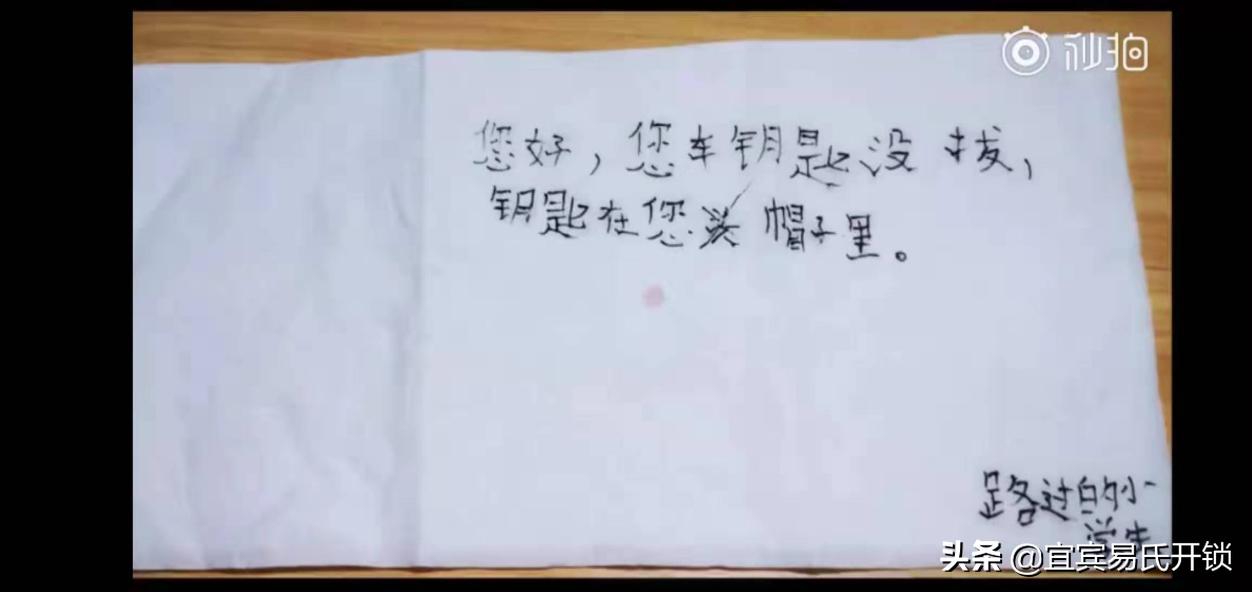 秒拍
您好，您车钥匙没拔，
钥匙在您头帽子里。
路过的小
学生
头条 @宜宾易氏开锁